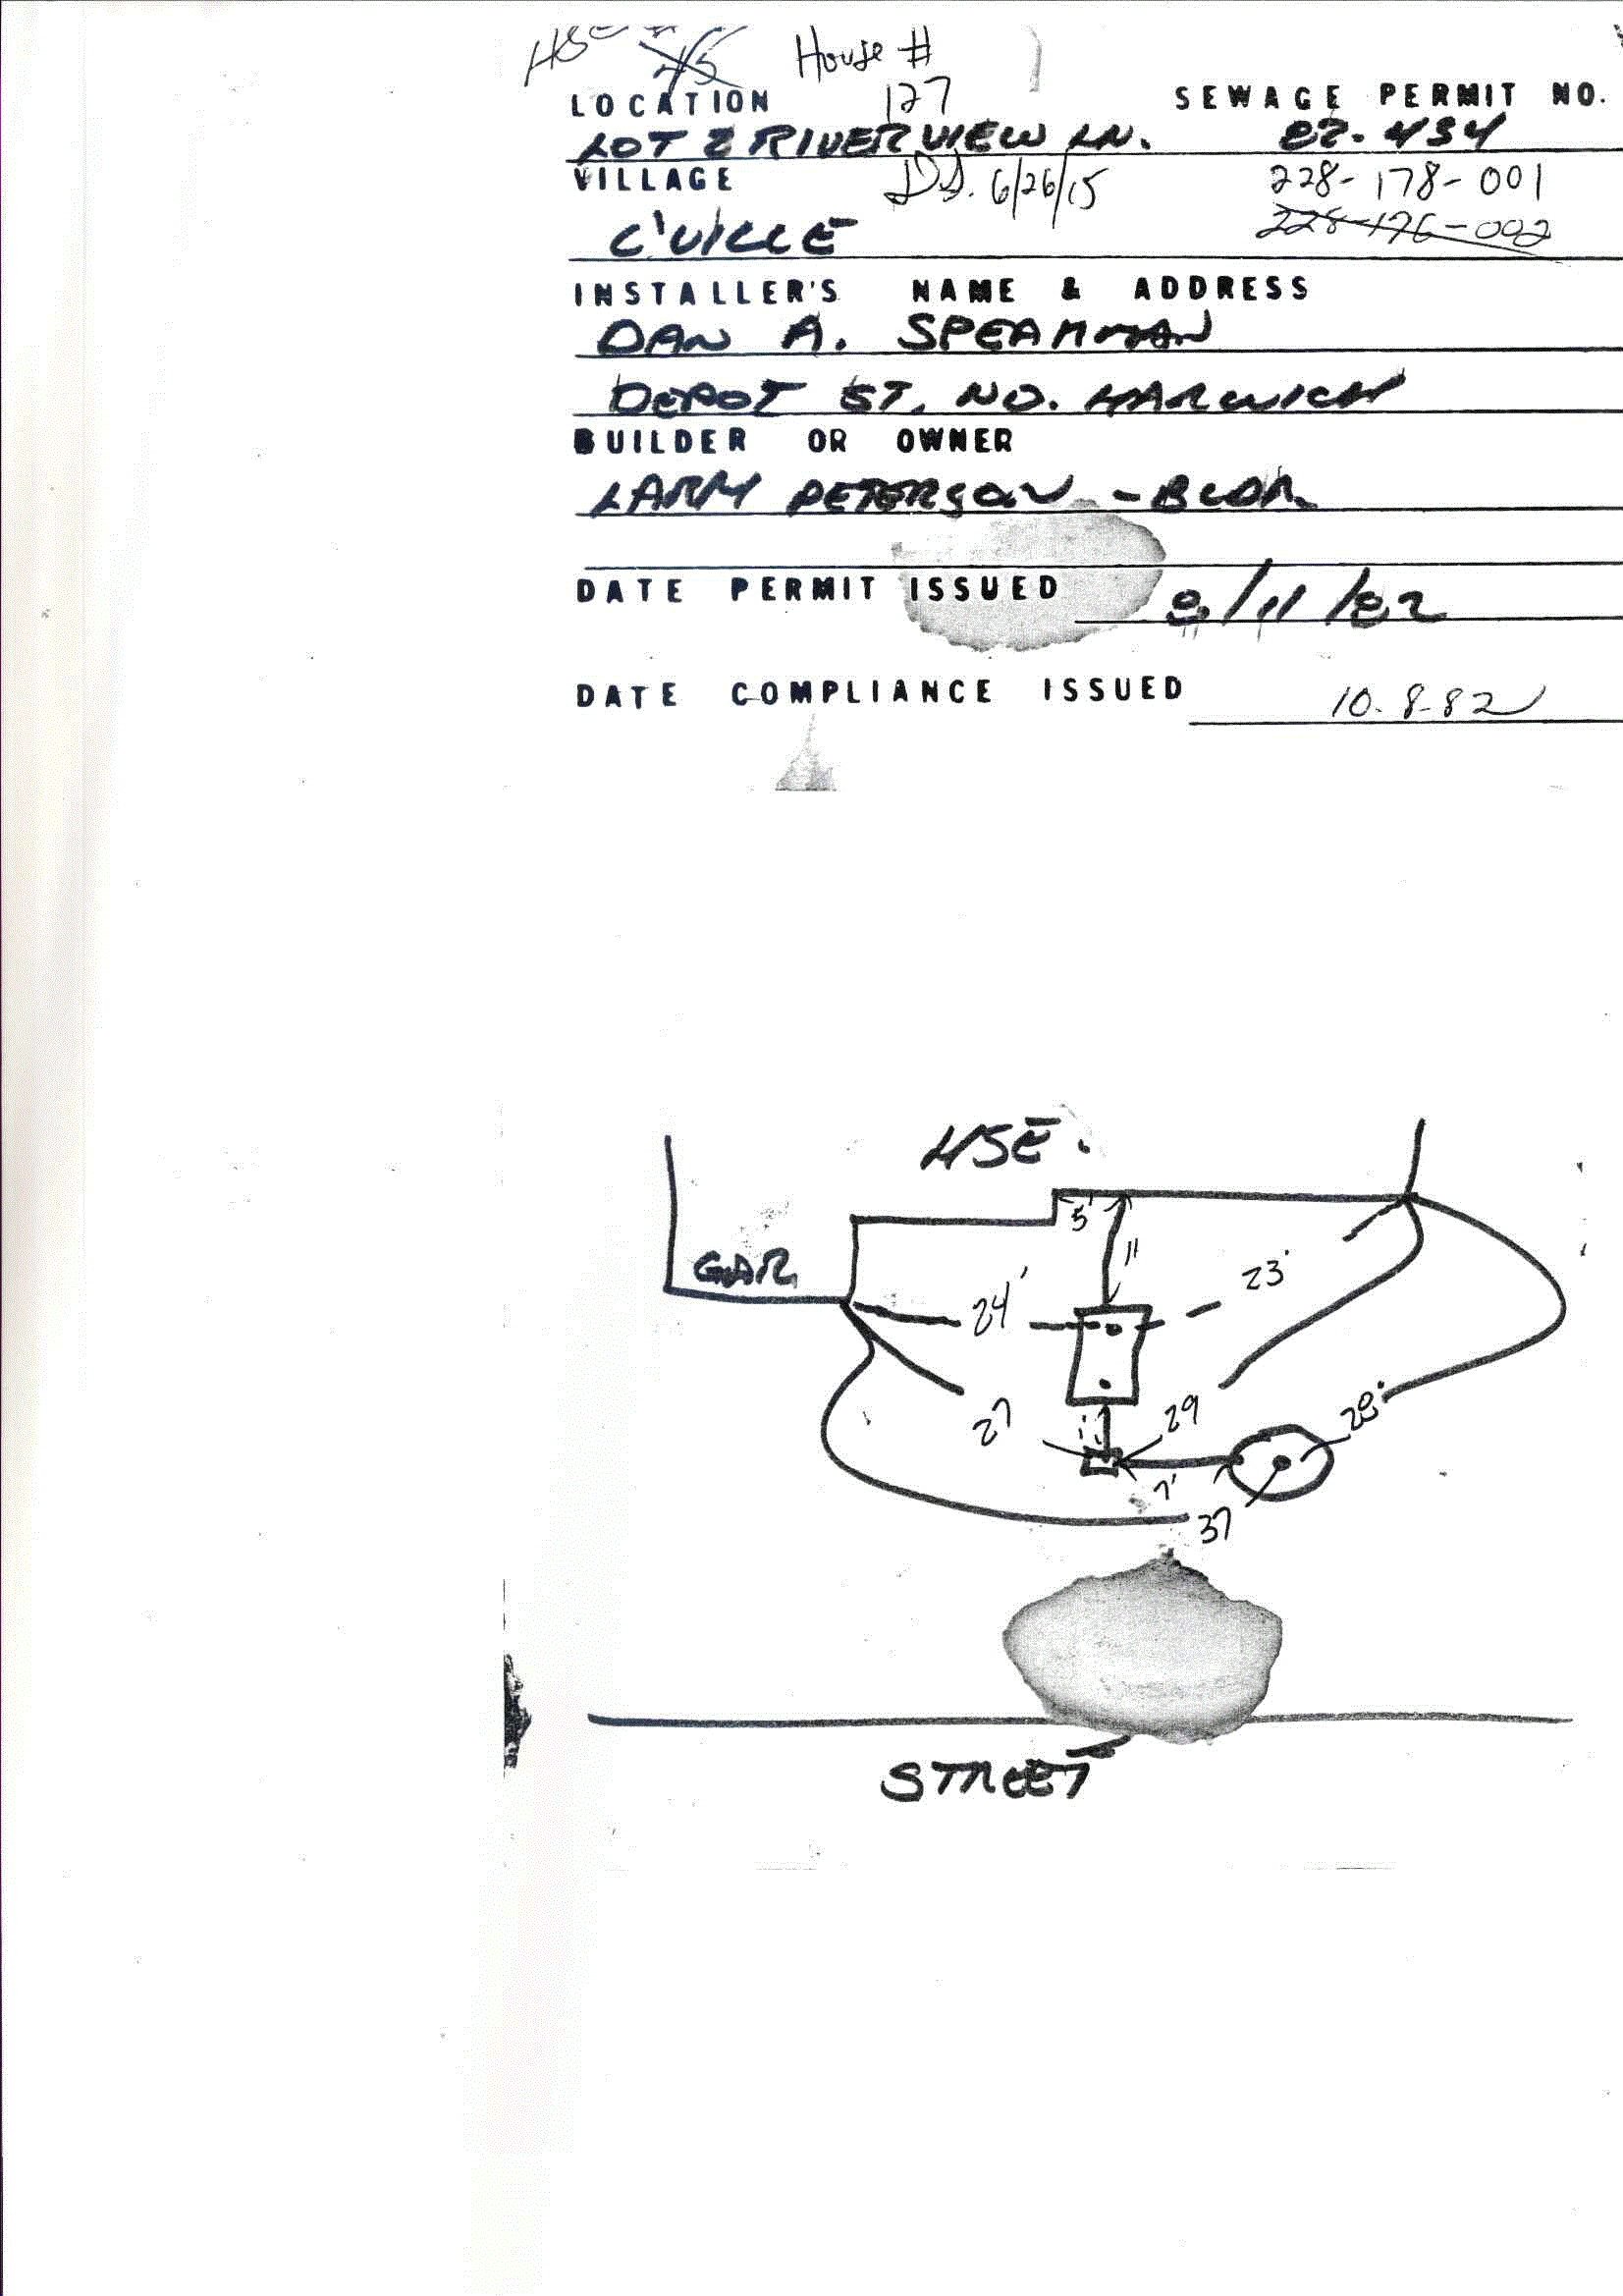 HSE # 45 House #
LOCATION 127 SEWAGE PERMIT NO.
LOT 2 RIVERVIEW LN. 82-434
VILLAGE D.S. 6/26/15 228-178-001
C'VILLE 228-176-002
INSTALLER'S NAME & ADDRESS
DAN A. SPEAKMAN
DEPOT ST. NO. HARWICH
BUILDER OR OWNER
LARRY PETERSON - BLDR.
DATE PERMIT ISSUED 8/11/82
DATE COMPLIANCE ISSUED 10-8-82
HSE.
5'
11
GAR.
24'
23'
27
29
28'
7'
37
STREET